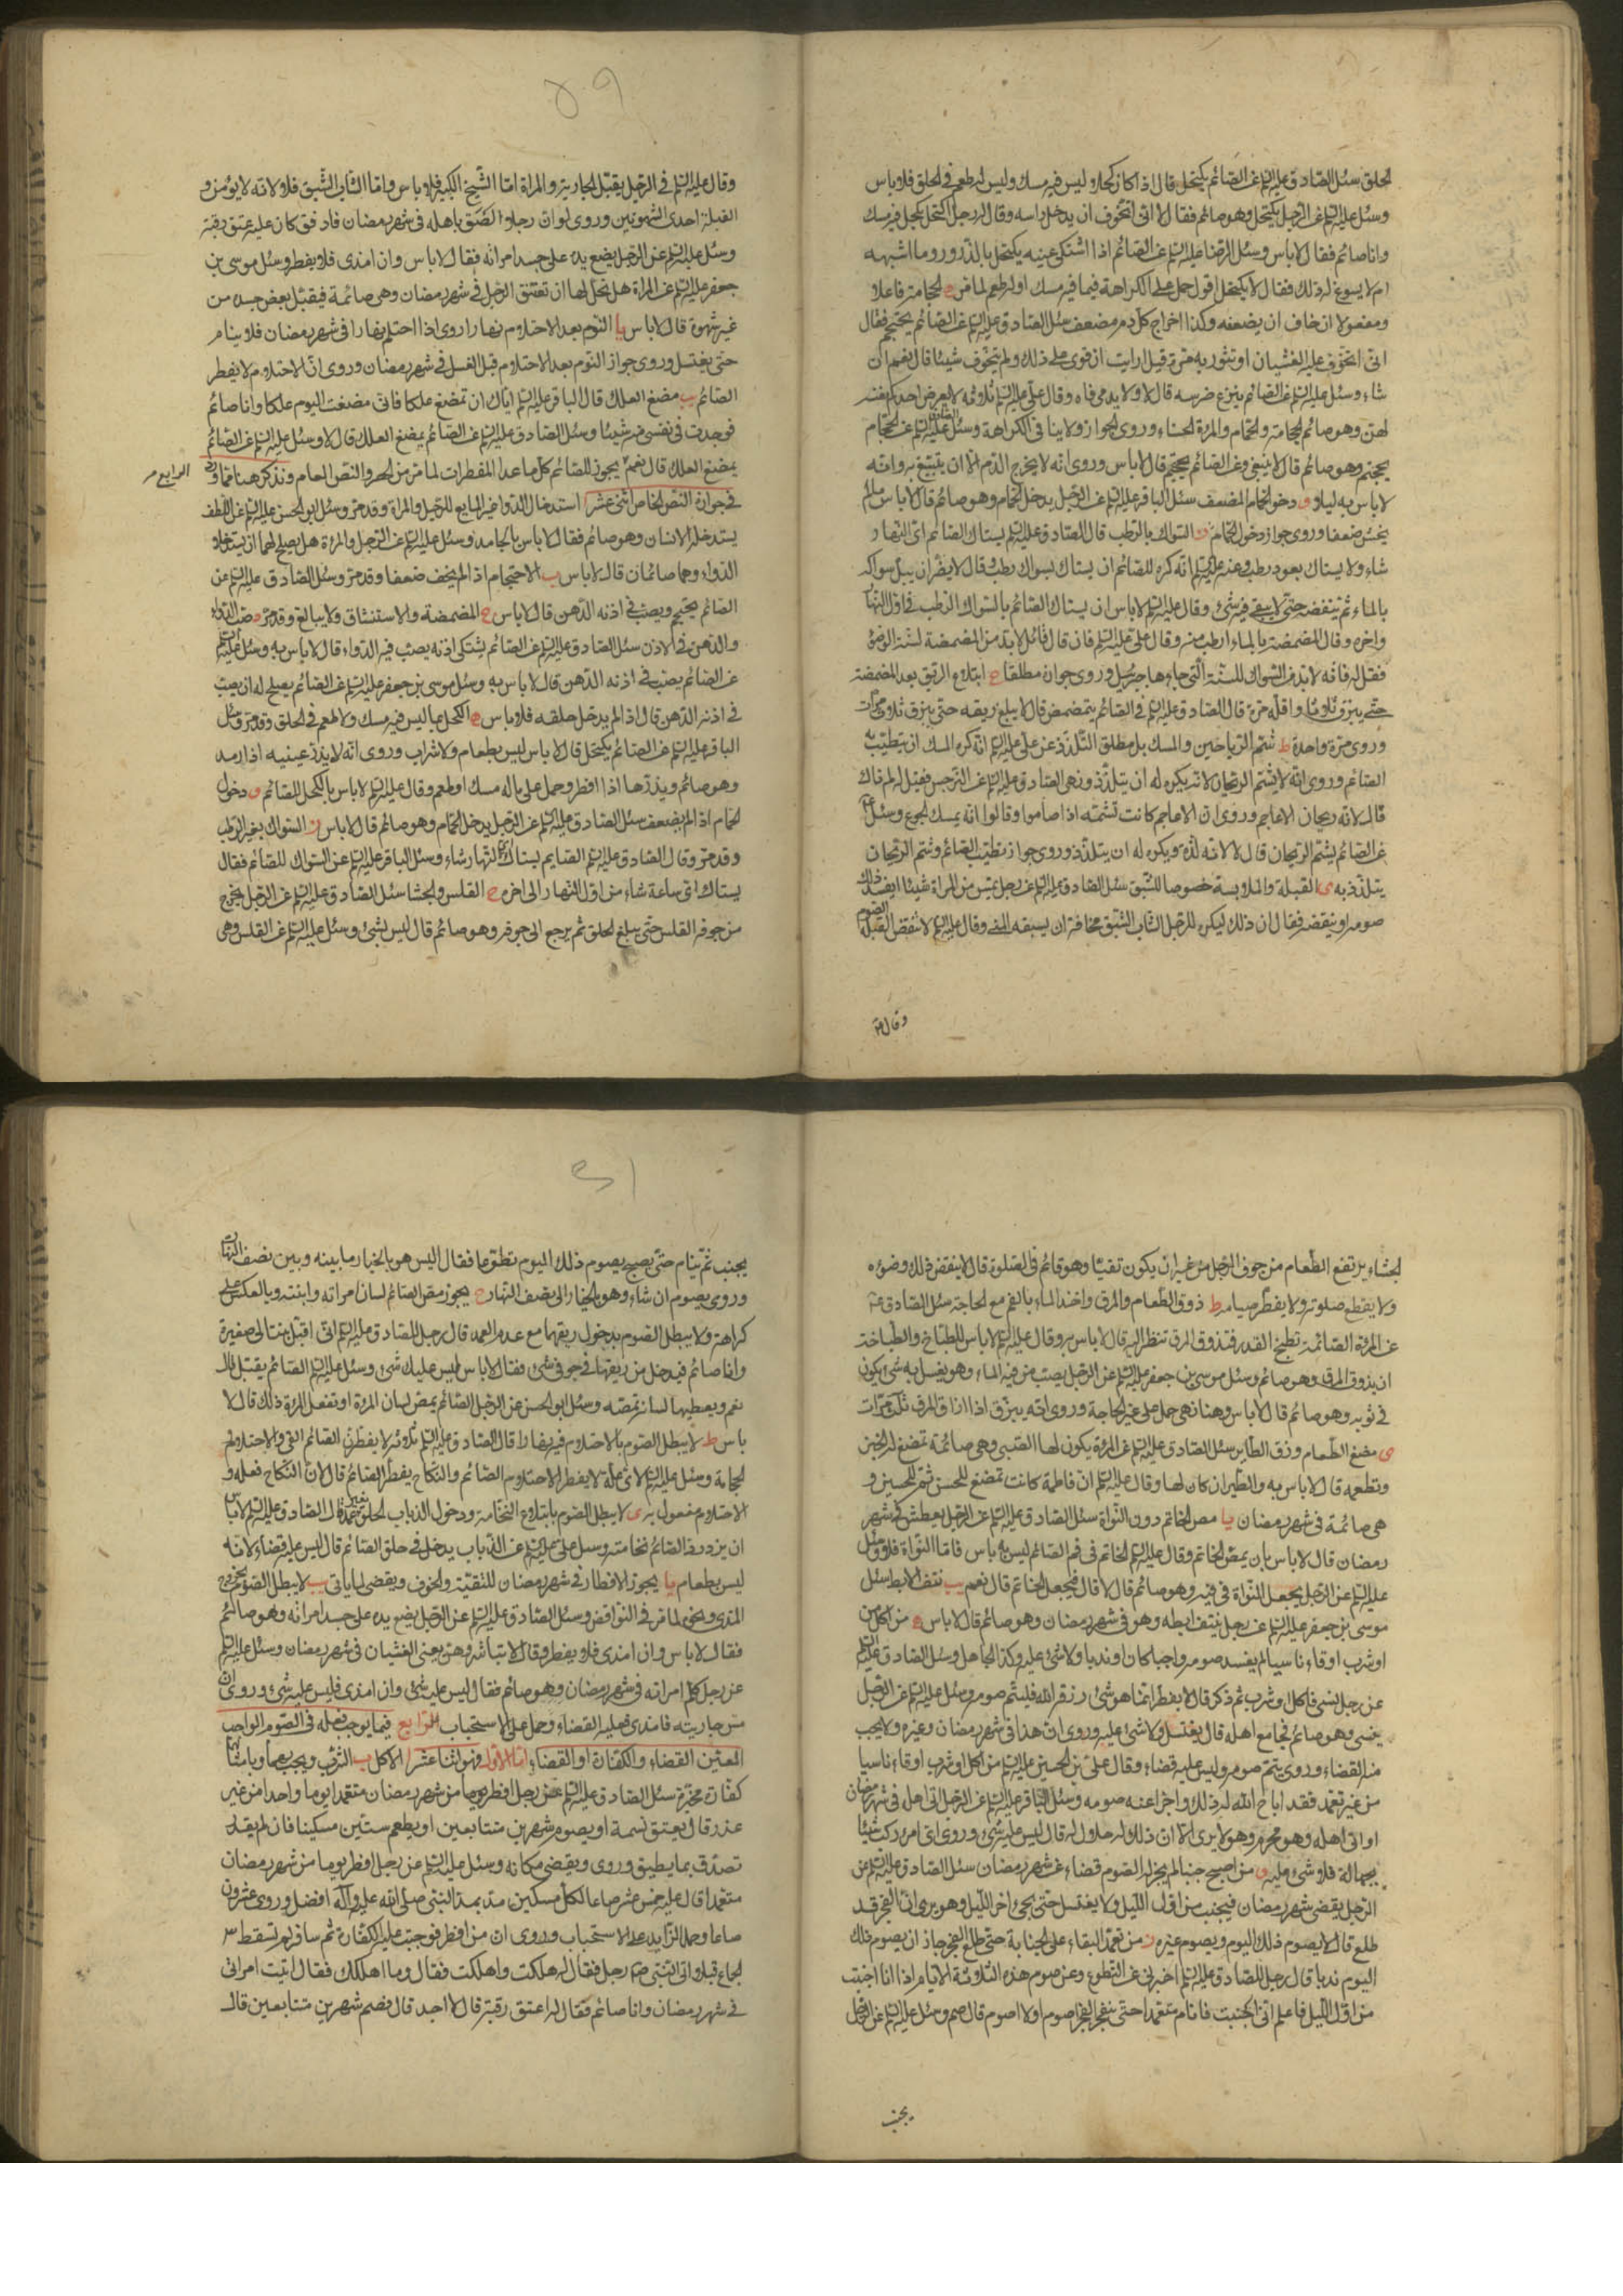 الحلق سئل الصادق عليه السلم عن الصائم يكتحل قال اذا كان كحلا وليس فيه مسك وليس له طعم في الحلق فلا باس
وسئل عليه السلم عن الرجل يكتحل وهو صائم فقال لا انى اتخوف ان يدخل راسه وقال له رجل اكتحل بكحل فيه مسك
وانا صائم فقال لا باس وسئل الرضا عليه السلم عن الصائم اذا اشتكى عينه يكتحل بالذرور وما اشبهه
ام لا يسوغ له ذلك فقال لا يكتحل اقول حمل على الكراهة فيما فيه مسك او له طعم لما مر ه الحجامة فاعلا
ومفعولا ان خاف ان يضعفه وكذا اخراج كل دم مضعف سئل الصادق عليه السلم عن الصائم يحتجم فقال
انى اتخوف عليه الغشيان او تثور به مرة قيل ارايت ان قوى على ذلك ولم يتخوف شيئا قال نعم ان
شاء وسئل عليه السلم عن الصائم ينزع ضرسه قال لا ولا يدمى فاه وقال على عليه السلم ثلاثة لا يعرض احدكم نفسه
لهن وهو صائم الحجامة والحمام والمرأة الحسناء وروى الجواز ولا ينافى الكراهة وسئل الصادق عليه السلم عن الحجام
يحجم وهو صائم قال لا ينبغى وعن الصائم يحتجم قال لا باس وروى انه لا يخرج الدم الا ان يتبيغ به وانه
لا باس به ليلا و دخول الحمام المضعف سئل الباقر عليه السلم عن الرجل يدخل الحمام وهو صائم قال لا باس ما لم
يخش ضعفا وروى جواز دخول الحمام ز السواك بالرطب قال الصادق عليه السلم يستاك الصائم اى النهار
شاء ولا يستاك بعود رطب وعنه عليه السلم انه كره للصائم ان يستاك بسواك رطب وقال لا يضر ان يبل سواكه
بالماء ثم ينفضه حتى لا يبقى فيه شىء وقال عليه السلم لا باس ان يستاك الصائم بالسواك الرطب فى اول النهار
واخره وقال المضمضة بالماء ارطب منه وقال على عليه السلم فان قال قائل لا بد من المضمضة لسنة الوضوء
فقل له فانه لا بد من السواك للسنة التى جاء بها جبرئيل وروى جوازه مطلقا ح ابتلاع الريق بعد المضمضة
حتى يبزق ثلاثا واقله مرة قال الصادق عليه السلم فى الصائم يتمضمض قال لا يبلع ريقه حتى يبزق ثلاث مرات
وروى مرة واحدة ط شم الرياحين والمسك بل مطلق التلذذ عن على عليه السلم انه كره المسك ان يتطيب به
الصائم وروى انه لا يشم الريحان لانه يكره له ان يتلذذ ونهى الصادق عليه السلم عن النرجس فقيل له لم ذاك
قال لانه ريحان الاعاجم وروى ان الاعاجم كانت تشمه اذا صاموا وقالوا انه يمسك الجوع وسئل
عن الصائم يشم الريحان قال لا لانه لذة ويكره له ان يتلذذ وروى جواز تطيب الصائم وشم الريحان
يتلذذ به ى القبلة والملامسة خصوصا للشبق سئل الصادق عليه السلم عن رجل يمس من المراة شيئا ايفسد ذلك
صومه او ينقضه فقال ان ذلك ليكره للرجل الشاب الشبق مخافة ان يسبقه المنى وقال عليه السلم لا تنقض القبلة الصوم
وقال ع
وقال عليه السلم فى الرجل يقبل الجارية والمراة اما الشيخ الكبير فلا باس واما الشاب الشبق فلا لانه لا يؤمن و
القبلة احدى الشهوتين وروى لو ان رجلا الصق باهله فى شهر رمضان فادفق كان عليه عتق رقبة
وسئل عليه السلم عن الرجل يضع يده على جسد امراته فقال لا باس وان امذى فلا يفطر وسئل موسى بن
جعفر عليه السلم عن المراة هل تحل لها ان تعتنق الرجل فى شهر رمضان وهى صائمة فيقبل بعض جسده من
غير شهوة قال لا باس يا النوم بعد الاحتلام نهارا روى اذا احتلم نهارا فى شهر رمضان فلا ينام
حتى يغتسل وروى جواز النوم بعد الاحتلام قبل الغسل فى شهر رمضان وروى ان الاحتلام لا يفطر
الصائم يب مضغ العلك قال الباقر عليه السلم اياك ان تمضغ علكا فانى مضغت اليوم علكا وانا صائم
فوجدت فى نفسى منه شيئا وسئل الصادق عليه السلم عن الصائم يمضغ العلك قال لا وسئل عليه السلم عن الصائم
يمضغ العلك قال نعم يجوز للصائم كل ما عدا المفطرات لما مر من الحصر والنص العام ونذكر هنا مما ورد
الرابع مر
فى جوازه النص الخاص اثنى عشر ا استدخال الدواء غير المايع للرجل والمراة وقد مر وسئل ابو الحسن عليه السلم عن اللطف
يستدخله الانسان وهو صائم فقال لا باس بالجامد وسئل عليه السلم عن الرجل والمرأة هل يصلح لهما ان يستدخلا
الدواء وهما صائمان قال لا باس ب الاحتجام اذا لم يخف ضعفا وقد مر وسئل الصادق عليه السلم عن
الصائم يحتجم ويصب فى اذنه الدهن قال لا باس ج المضمضة والاستنشاق ولا يبالغ وقد مر د صب الدواء
والدهن فى الاذن سئل الصادق عليه السلم عن الصائم يشتكى اذنه يصب فيه الدواء قال لا باس به وسئل عليه السلم
عن الصائم يصب فى اذنه الدهن قال لا باس به وسئل موسى بن جعفر عليه السلم عن الصائم يصلح له ان يصب
فى اذنه الدهن قال اذا لم يدخل حلقه فلا باس ه الكحل بما ليس فيه مسك ولا طعم فى الحلق وقد مر وسئل
الباقر عليه السلم عن الصائم يكتحل قال لا باس ليس بطعام ولا شراب وروى انه لا يذر عينيه اذا رمد
وهو صائم ويذرها اذا افطر وحمل على ما له مسك او طعم وقال عليه السلم لا باس بالكحل للصائم و دخول
الحمام اذا لم يضعف سئل الصادق عليه السلم عن الرجل يدخل الحمام وهو صائم قال لا باس ز السواك بغير الرطب
وقد مر وقال الصادق عليه السلم الصايم يستاك اى النهار شاء وسئل الباقر عليه السلم عن السواك للصائم فقال
يستاك اى ساعة شاء من اول النهار الى اخره ح القلس والجشا سئل الصادق عليه السلم عن الرجل يخرج
من جوفه القلس حتى يبلغ الحلق ثم يرجع الى جوفه وهو صائم قال ليس بشىء وسئل عليه السلم عن القلس وهى
الجشاء يرتفع الطعام من جوف الرجل من غير ان يكون تقيئا وهو قائم فى الصلوة قال لا ينقض ذلك وضوءه
ولا يقطع صلوته ولا يفطر صيامه ط ذوق الطعام والمرق واخذ الماء بالفم مع الحاجة سئل الصادق ع
عن المرأة الصائمة تطبخ القدر فتذوق المرق تنظر اليه قال لا باس به وقال عليه السلم لا باس للطباخ والطباخة
ان يذوق المرق وهو صائم وسئل موسى بن جعفر عليه السلم عن الرجل يصب من فيه الماء وهو يغسل به شىء يكون
فى ثوبه وهو صائم قال لا باس وهنا نهى حمل على غير الحاجة وروى انه يبزق اذا ذاق المرق ثلث مرات
ى مضغ الطعام وزق الطاير سئل الصادق عليه السلم عن المرأة يكون لها الصبى وهى صائمة تمضغ له الخبز
وتطعمه قال لا باس به والطير ان كان لها وقال عليه السلم ان فاطمة كانت تمضغ للحسن ثم للحسين و
هى صائمة فى شهر رمضان يا مص الخاتم دون النواة سئل الصادق عليه السلم عن الرجل يعطش فى شهر
رمضان قال لا باس بان يمص الخاتم وقال عليه السلم الخاتم فى فم الصائم ليس به باس فاما النواة فلا وسئل
عليه السلم عن الرجل يجعل النواة فى فيه وهو صائم قال لا قال فيجعل الخاتم قال نعم يب نتف الابط سئل
موسى بن جعفر عليه السلم عن رجل ينتف ابطه وهو فى شهر رمضان وهو صائم قال لا باس ه من اكل
او شرب او قاء ناسيا لم يفسد صومه واجبا كان او ندبا ولا شىء عليه وكذا الجاهل وسئل الصادق عليه السلم
عن رجل نسى فاكل وشرب ثم ذكر قال لا يفطر انما هو شىء رزقه الله فليتم صومه وسئل عليه السلم عن الرجل
ينسى وهو صائم فجامع اهله قال يغتسل ولا شىء عليه وروى ان هذا فى شهر رمضان وغيره ولا يجب
منه القضاء وروى يتم صومه وليس عليه قضاء وقال على بن الحسين عليه السلم من اكل او شرب او قاء ناسيا
من غير تعمد فقد اباح الله له ذلك واجزا عنه صومه وسئل الباقر عليه السلم عن الرجل اتى اهله فى شهر رمضان
او اتى اهله وهو محرم وهو لا يرى الا ان ذلك حلال له قال ليس عليه شىء وروى اى امرء ركب شيئا
بجهالة فلا شىء عليه و من اصبح جنبا لم يجز له الصوم قضاء عن شهر رمضان سئل الصادق عليه السلم عن
الرجل يقضى شهر رمضان فيجنب من اول الليل ولا يغتسل حتى يجىء اخر الليل وهو يرى ان الفجر قد
طلع قال لا يصوم ذلك اليوم ويصوم غيره ز من تعمد البقاء على الجنابة حتى طلع الفجر جاز ان يصوم ذلك
اليوم ندبا قال رجل للصادق عليه السلم اخبرنى عن التطوع وعن صوم هذه الثلاثة الايام اذا انا اجنبت
من اول الليل فاعلم انى اجنبت فانام متعمدا حتى ينفجر الفجر اصوم او لا اصوم قال صم وسئل عليه السلم عن الرجل
يجنب
يجنب ثم ينام حتى يصبح يصوم ذلك اليوم تطوعا فقال اليس هو بالخيار ما بينه وبين نصف النهار
وروى يصوم ان شاء وهو بالخيار الى نصف النهار ح يجوز مص الصائم لسان امراته وابنته وبالعكس على
كراهة ولا يبطل الصوم بدخول ريقهما مع عدم العمد قال رجل للصادق عليه السلم انى اقبل بنتا لى صغيرة
وانا صائم فيدخل من ريقها فى جوفى شىء فقال لا باس ليس عليك شىء وسئل عليه السلم الصائم يقبل قال
نعم ويعطيها لسانه تمصه وسئل ابو الحسن عن الرجل الصائم يمص لسان المرأة او تفعل المرأة ذلك قال لا
باس ط لا يبطل الصوم بالاحتلام فيه نهارا قال الصادق عليه السلم ثلاثة لا يفطرن الصائم القىء والاحتلام و
الحجامة وسئل عليه السلم لاى علة لا يفطر الاحتلام الصائم والنكاح يفطر الصائم قال لان النكاح فعله و
الاحتلام مفعول به ى لا يبطل الصوم بابتلاع النخامة ودخول الذباب الحلق بغير عمد قال الصادق عليه السلم لا باس
ان يزدرد الصائم نخامته وسئل على عليه السلم عن الذباب يدخل فى حلق الصائم قال ليس عليه قضاء لانه
ليس بطعام يا يجوز الافطار فى شهر رمضان للتقية والخوف ويقضى لما ياتى يب لا يبطل الصوم بخروج
المذى ونحوه لما مر فى النواقض وسئل الصادق عليه السلم عن الرجل يضع يده على جسد امراته وهو صائم
فقال لا باس وان امذى فلا يفطر وقال لا تباشروهن يعنى الغشيان فى شهر رمضان وسئل عليه السلم
عن رجل كلم امراته فى شهر رمضان وهو صائم فقال ليس عليه شىء وان امذى فليس عليه شىء وروى ان
من مس جاريته فامذى فعليه القضاء وحمل على الاستحباب الرابع فيما يوجب فعله فى الصوم الواجب
المعين القضاء والكفارة او القضاء اما الاول فهو اثنا عشر ا الاكل ب الشرب ويجب بهما
كفارة مخيرة سئل الصادق عليه السلم عن رجل افطر يوما من شهر رمضان متعمدا يوما واحدا من غير
عذر قال يعتق نسمة او يصوم شهرين متتابعين او يطعم ستين مسكينا فان لم يقدر
تصدق بما يطيق وروى ويقضى مكانه وسئل عليه السلم عن رجل افطر يوما من شهر رمضان
متعمدا قال عليه خمس عشر صاعا لكل مسكين مد بمد النبى صلى الله عليه واله افضل وروى عشرون
صاعا وحمل الزايد على الاستحباب وروى ان من افطر فوجبت عليه الكفارة ثم سافر لم تسقط س
الجماع قبلا واتى النبى رجل فقال له هلكت واهلكت فقال وما اهلكك فقال اتيت امراتى
فى شهر رمضان وانا صائم فقال له اعتق رقبة قال لا اجد قال فصم شهرين متتابعين قال